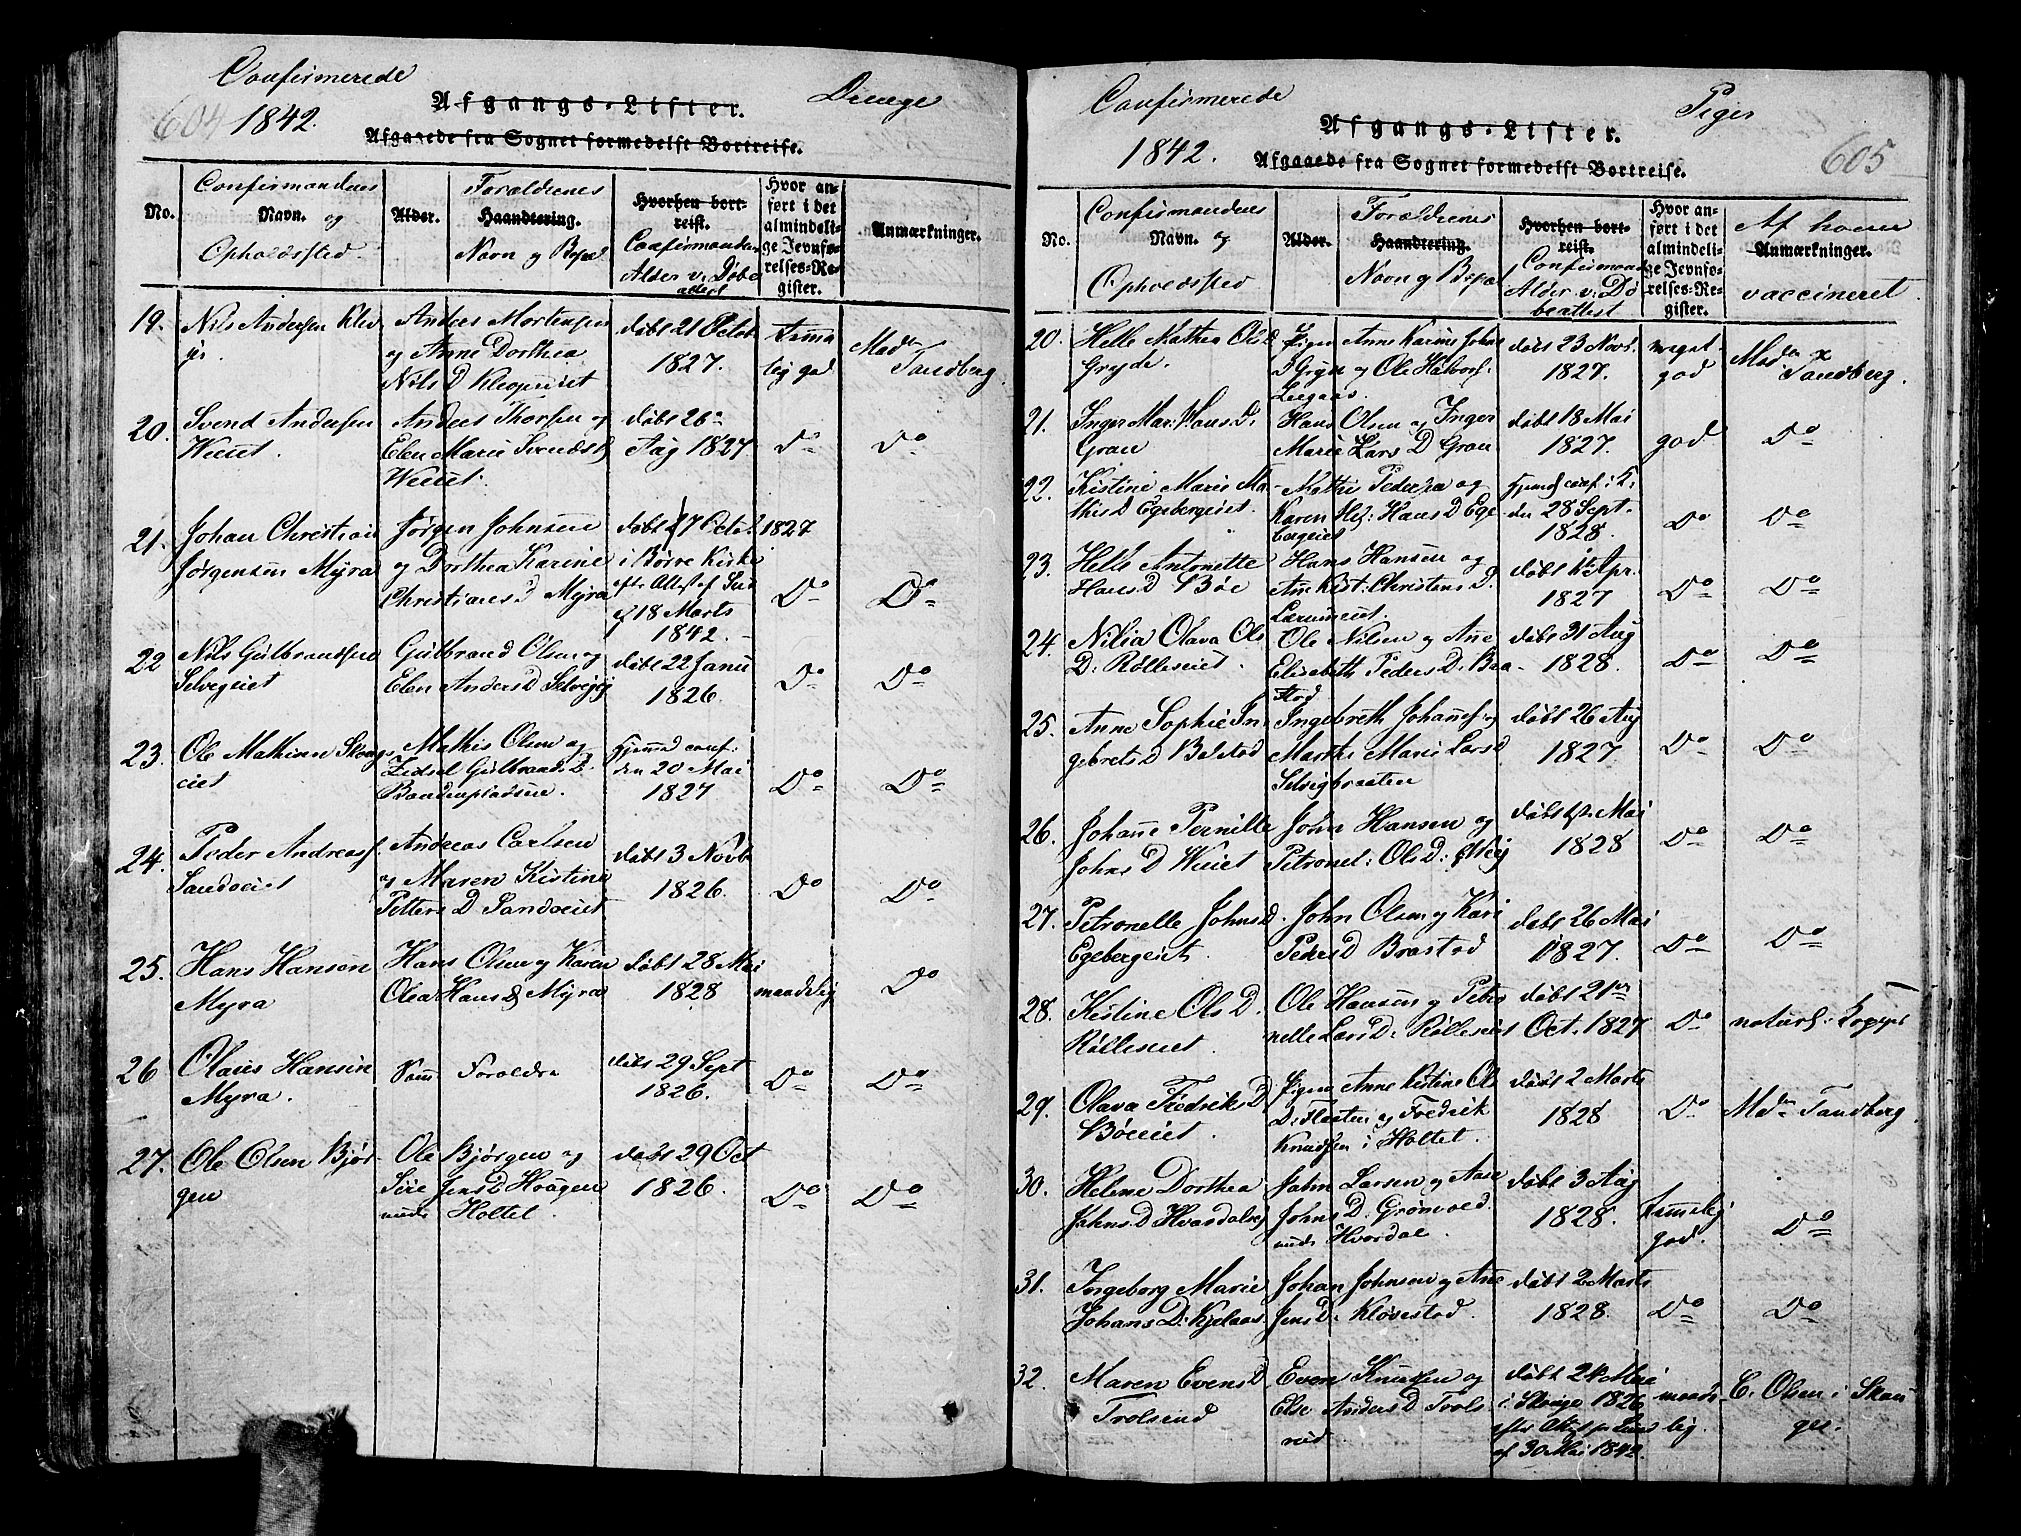 Confirmerede
604 1842.
Afgangs-Lister.
Drenge
Afgaaede fra Sognet formedelst Bortreise.
No.
Confirmandens
Navn. og
Opholdssted.
Alder.
Forældrenes
Haandtering.
Navn og Bopæl
Hvorhen bort-
reist.
Confirmandens
Alder v: Døbe
attest
Hvor an-
ført i det
almindeli-
ge Jevnfø-
relses-Re-
gister.
Anmærkninger.
19. Nils Andersen
Anders Mortensen
og Anne Dorthea
Nils D
døbt 21
1827.
god
Mad Tandberg.
20. Svend Andersen
Anders Thorsen og
Elen Marie Svends D
døbt 26
Aug 1827
Do
Do
21. Johan Christian
Jørgensen Myra
Jørgen Johnsen
og Dorthea Karine
Christians D Myra
døbt 7 Octob 1827
i Borre Kirke
efter Attest af
18 Marts
1842.
Do
Do
22 Nils Gulbrandsen
Selvegeiet
Gulbrand Olsen og
Elen Anders D
døbt 22 Janu
1826.
Do
Do
23. Ole Mathisen
eiet
Mathis Olsen og
Gulbrands D.
Hjemmed conf:
den 20 Mai
1827
Do
Do
24. Peder Andreas
Sandveiet
Andreas Carlsen
og Maren Kistine
Petters D Sandveiet
døbt 3 Novb
1826.
Do
Do
25. Hans Hansen
Myra
Hans Olsen og Karen
Olea Hans D Myra
døbt 28 Mai
1828
maadelig
Do
26 Olaus Hansen
Myra.
Samme Foraldre
døbt 29 Sept
1826.
Do
Do
27. Ole Olsen Bjør-
gen
Ole Bjørgen og
Siri Jens D Haugen
under Holtet.
døbt 29 Oct
1826.
Do
Do
Confirmerede
1842.
Afgangs-Lister.
Piger
605
Afgaaede fra Sognet formedelst Bortreise.
No.
Confirmandens
Navn. og
Opholdssted
Alder.
Forældrenes
Haandtering.
Navn og Bopæl
Hvorhen bort-
reist.
Confirmand
Alder v: Dø
beattest
Hvor an-
ført i det
almindeli-
ge Jevnfø-
relses-Re-
gister.
Af hvem
Anmærkninger.
vaccineret.
20. Helle Mathea Ols D
Gryde.
Pigen Anne Karine Johns
D Gryde og Ole Halvors.
døbt 23 Novr.
1827.
meget
god
Mad Tandberg.
21. Inger Mar: Hans D.
Gran
Hans Olsen og Inger
Marie Lars D Gran
døbt 18 Mai
1827.
god
Do
22. Kistine Marie Ma-
this D Egebergeiet.
Mathis Pedersen og
Karen Hel: Hans D Ege
bergeiet
Hjemmed conf: i K.
den 28 Sept.
1828.
Do
Do
23. Helle Antonette
Hans D Bøe
Hans Hansen og
Ann Kist: Christens D.
døbt 1 Apr.
1827
Do
Do
24. Nilia Olava Ols
D: Rølleseiet.
Ole Nilsen og Ane
Elisabeth Peders D. Bra-
stad
døbt 31 Aug
1828.
Do
Do
25. Anne Sophie In-
gebrets D Bolstad
Ingebreth Johannes og
Marthe Marie Lars D
Selvigbraaten
døbt 26 Aug
1827.
Do
Do
26. Johanne Pernille
Johns D
John Hansen og
Petronel: Ols D:
døbt Mai
1828
Do
Do
27. Petronelle Johns D.
Egebergeiet.
John Olsen og Kari
Peders D Brastad
døbt 26 Mai
1827.
Do
Do
28. Kistine Ols D.
Rølleseiet.
Ole Hansen og Petro
nelle Lars D: Rølleseiet
døbt 21
Oct. 1827
Do
naturl: Kopper
29. Olava Fredriks D
Bøeiet.
Pigen Anne Kistine Ols
D: Floten og Fredrik
Knudsen i Holtet.
døbt 2 Marts
1828
Do
Md Tandberg
30. Helene Dorthea
Johns D Hvardalsej
John Larsen og Aase
Johns D. Grønvold.
under Hvordal.
døbt 3 Aug
1828.
temmelig
god.
Do
31. Ingeborg Marie
Johans D: Kjelaas.
Johan Johnsen og Ane
Jens D: Kløvestad.
døbt 2 Marts
1828.
Do
Do
32. Maren Evens D
Trolserud
Even Knudsen og
Else Anders D Trols
rud
døbt 24 Mai
i 1826
efter Attest fra
af 30 Mai 1842.
maade-
lig.
C. Olsen i Skau
ger.